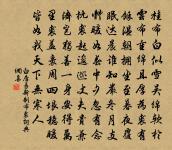 桂布白似雪吳綿軟於
雲布重綿且厚為裘有
餘溫朝擁坐至暮夜覆
眠達晨誰知嚴冬月支
體暖如春中夕忽有念
撫裘起逡巡丈夫貴兼
濟豈獨善一身安得萬
里裘蓋裹周四垠穩暖
皆如我天下無寒人
白居易新制布裘詞典
網